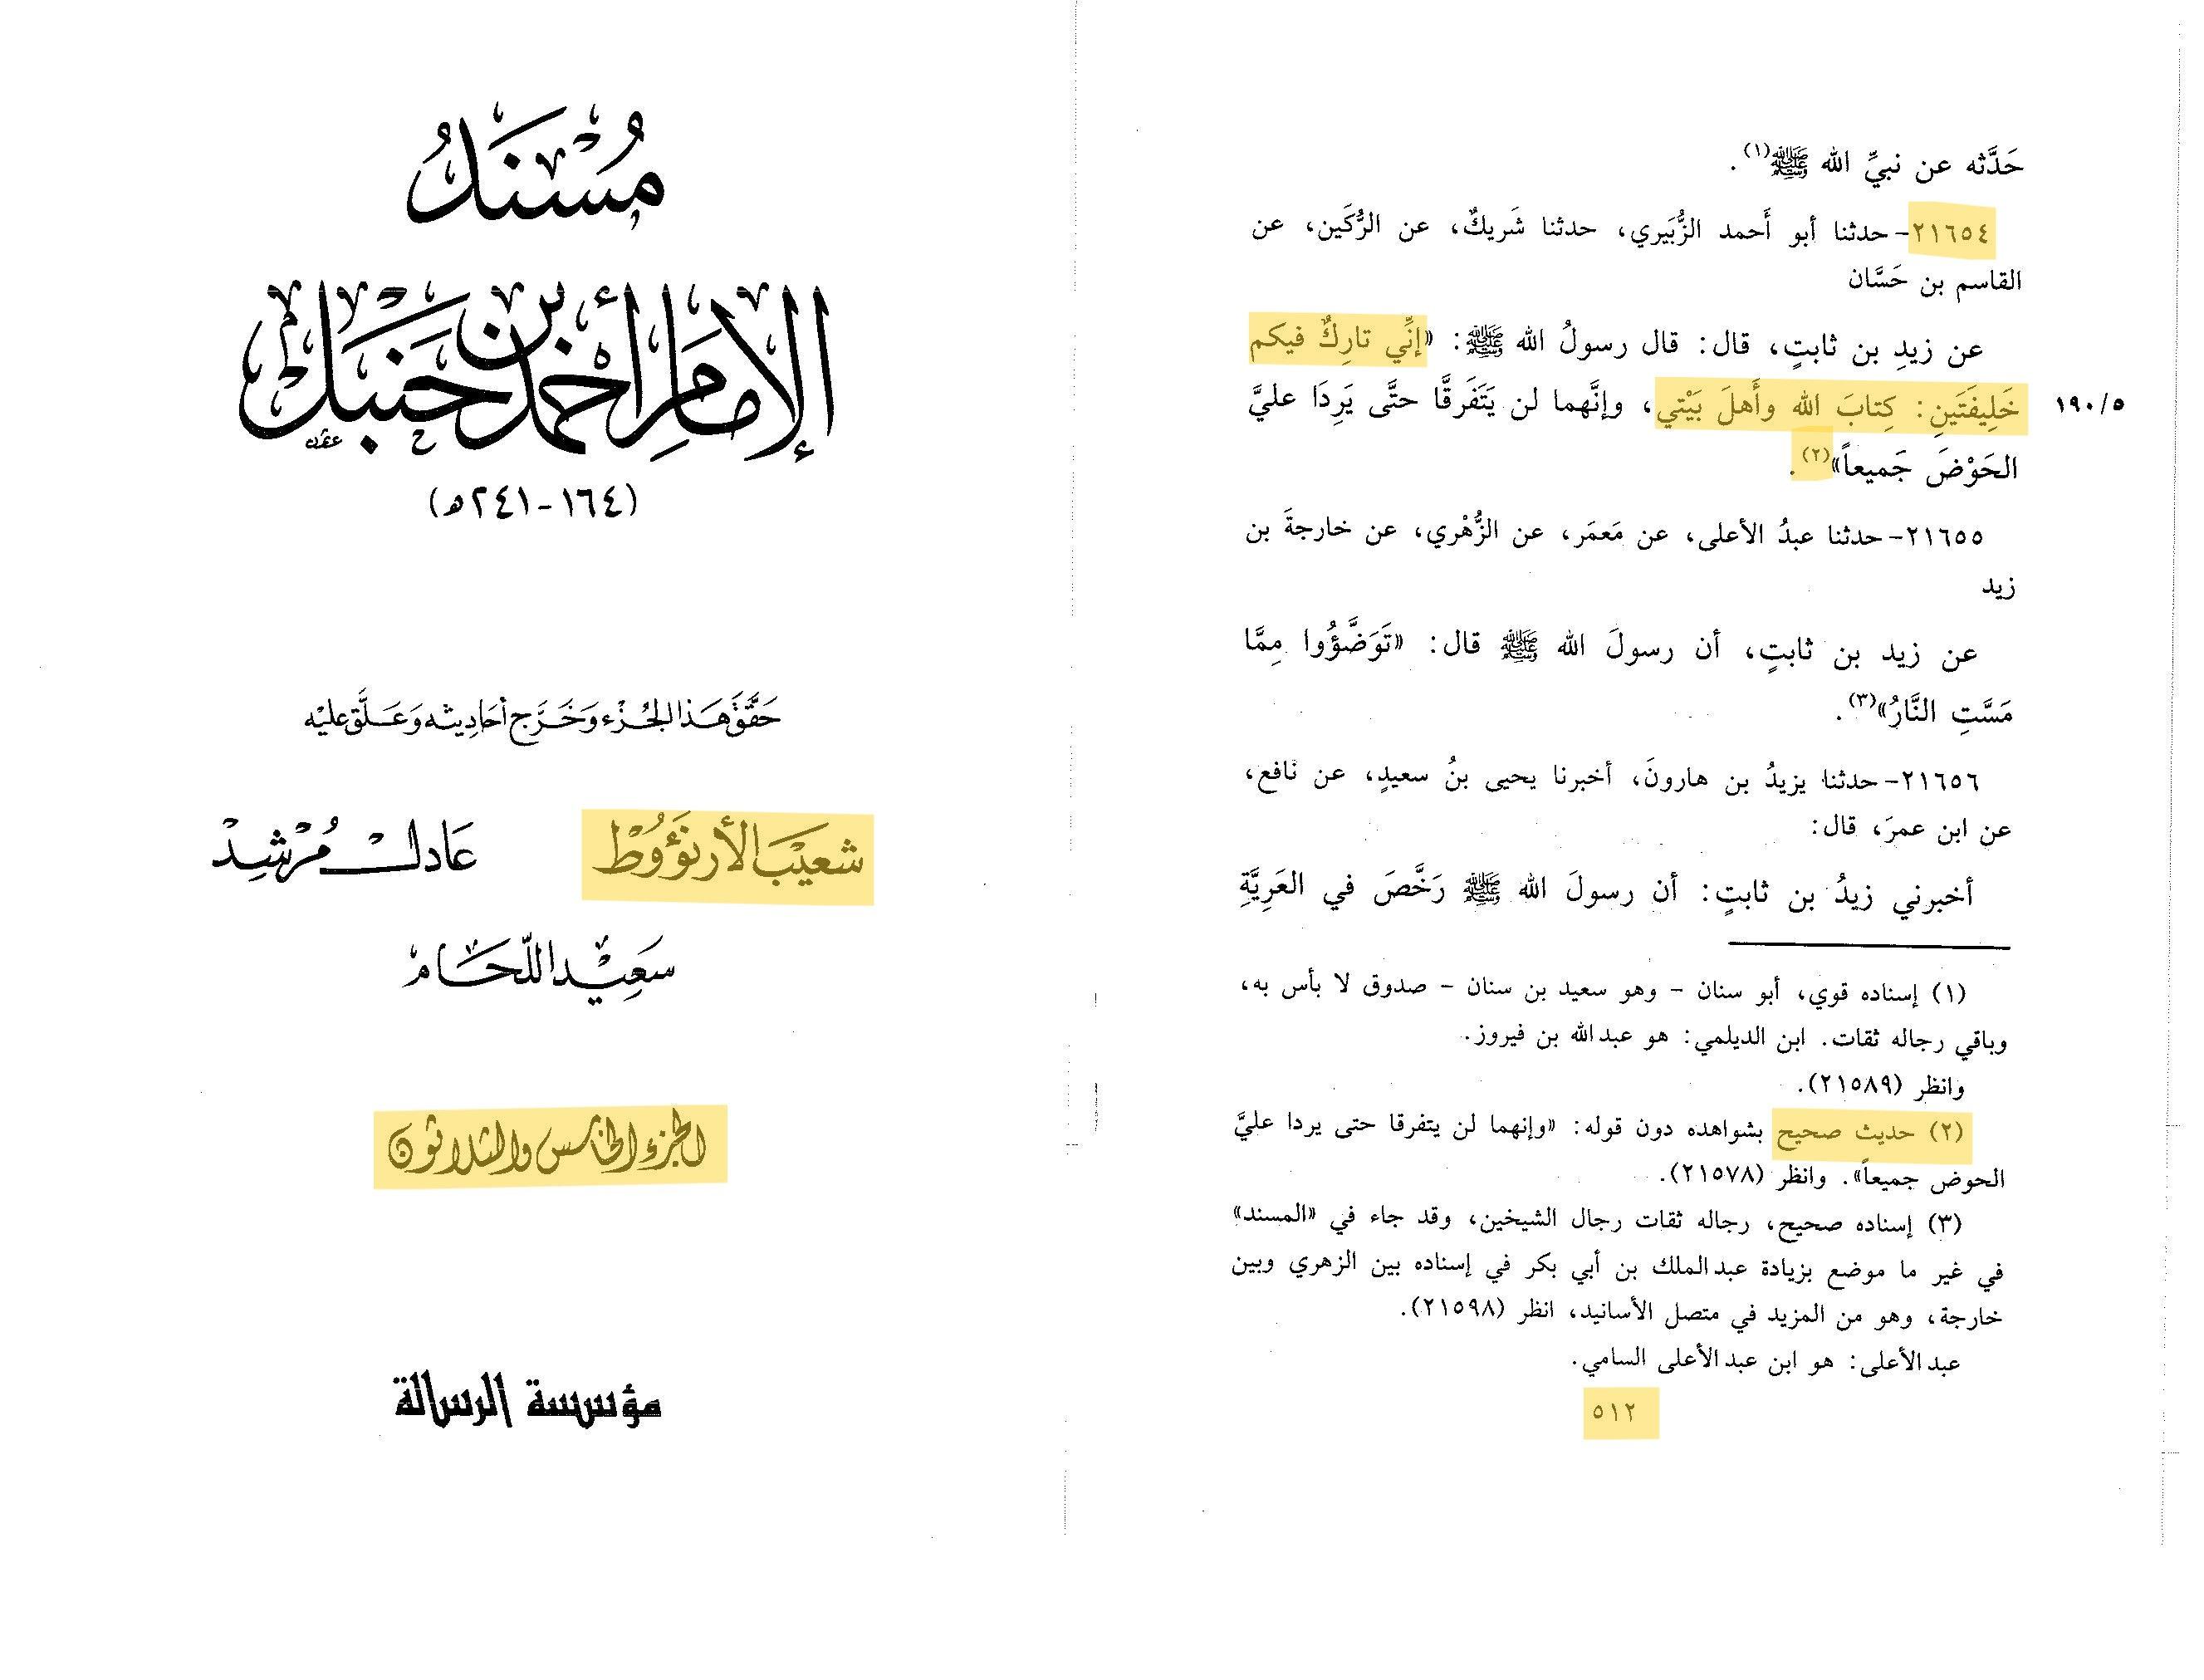 مُسْنَدُ
الإِمَامِ أَحْمَدَ بْنِ حَنْبَلٍ
(١٦٤-٢٤١ه)
حَقَّقَ هَذَا الجُزْء وَخَرَّج أحَادِيثه وَعَلَّقَ عليْه
شعَيْب الأرنَؤُوطْ عَادل مُرْشِدْ
سَعِيْد اللّحَام
الجزء الخامس والثلاثون
مؤسسة الرسالة
حَدَّثه عن نبيِّ الله ﷺ(١).
٢١٦٥٤- حدثنا أبو أَحمد الزُّبَيري، حدثنا شَريكٌ، عن الرُّكَين، عن
القاسم بن حَسَّان
عن زيدِ بن ثابتٍ، قال: قال رسولُ الله ﷺ: «إنِّي تارِكٌ فيكم
خَلِيفَتَينِ: كِتابَ الله وأَهلَ بَيْتي، وإنَّهما لن يَتَفَرقَّا حتَّى يَرِدَا عليَّ ١٩٠/٥
الحَوْضَ جَميعاً»(٢).
٢١٦٥٥- حدثنا عبدُ الأعلى، عن مَعمَر، عن الزُّهْري، عن خارجةَ بن
زيد
عن زيد بن ثابتٍ، أن رسولَ الله ﷺ قال: «تَوَضَّؤُوا مِمَّا
مَسَّتِ النَّارُ»(٣).
٢١٦٥٦- حدثنا يزيدُ بن هارونَ، أخبرنا يحيى بنُ سعيدٍ، عن نافع،
عن ابن عمرَ، قال:
أخبرني زيدُ بن ثابتٍ: أن رسولَ الله ﷺ رَخَّصَ في العَرِيَّةِ
(١) إسناده قوي، أبو سنان - وهو سعيد بن سنان - صدوق لا بأس به،
وباقي رجاله ثقات. ابن الديلمي: هو عبدالله بن فيروز.
وانظر (٢١٥٨٩).
(٢) حديث صحيح بشواهده دون قوله: «وإنهما لن يتفرقا حتى يردا عليَّ
الحوض جميعاً». وانظر (٢١٥٧٨).
(٣) إسناده صحيح، رجاله ثقات رجال الشيخين، وقد جاء في «المسند»
في غير ما موضع بزيادة عبدالملك بن أبي بكر في إسناده بين الزهري وبين
خارجة، وهو من المزيد في متصل الأسانيد، انظر (٢١٥٩٨).
عبدالأعلى: هو ابن عبدالأعلى السامي.
٥١٢